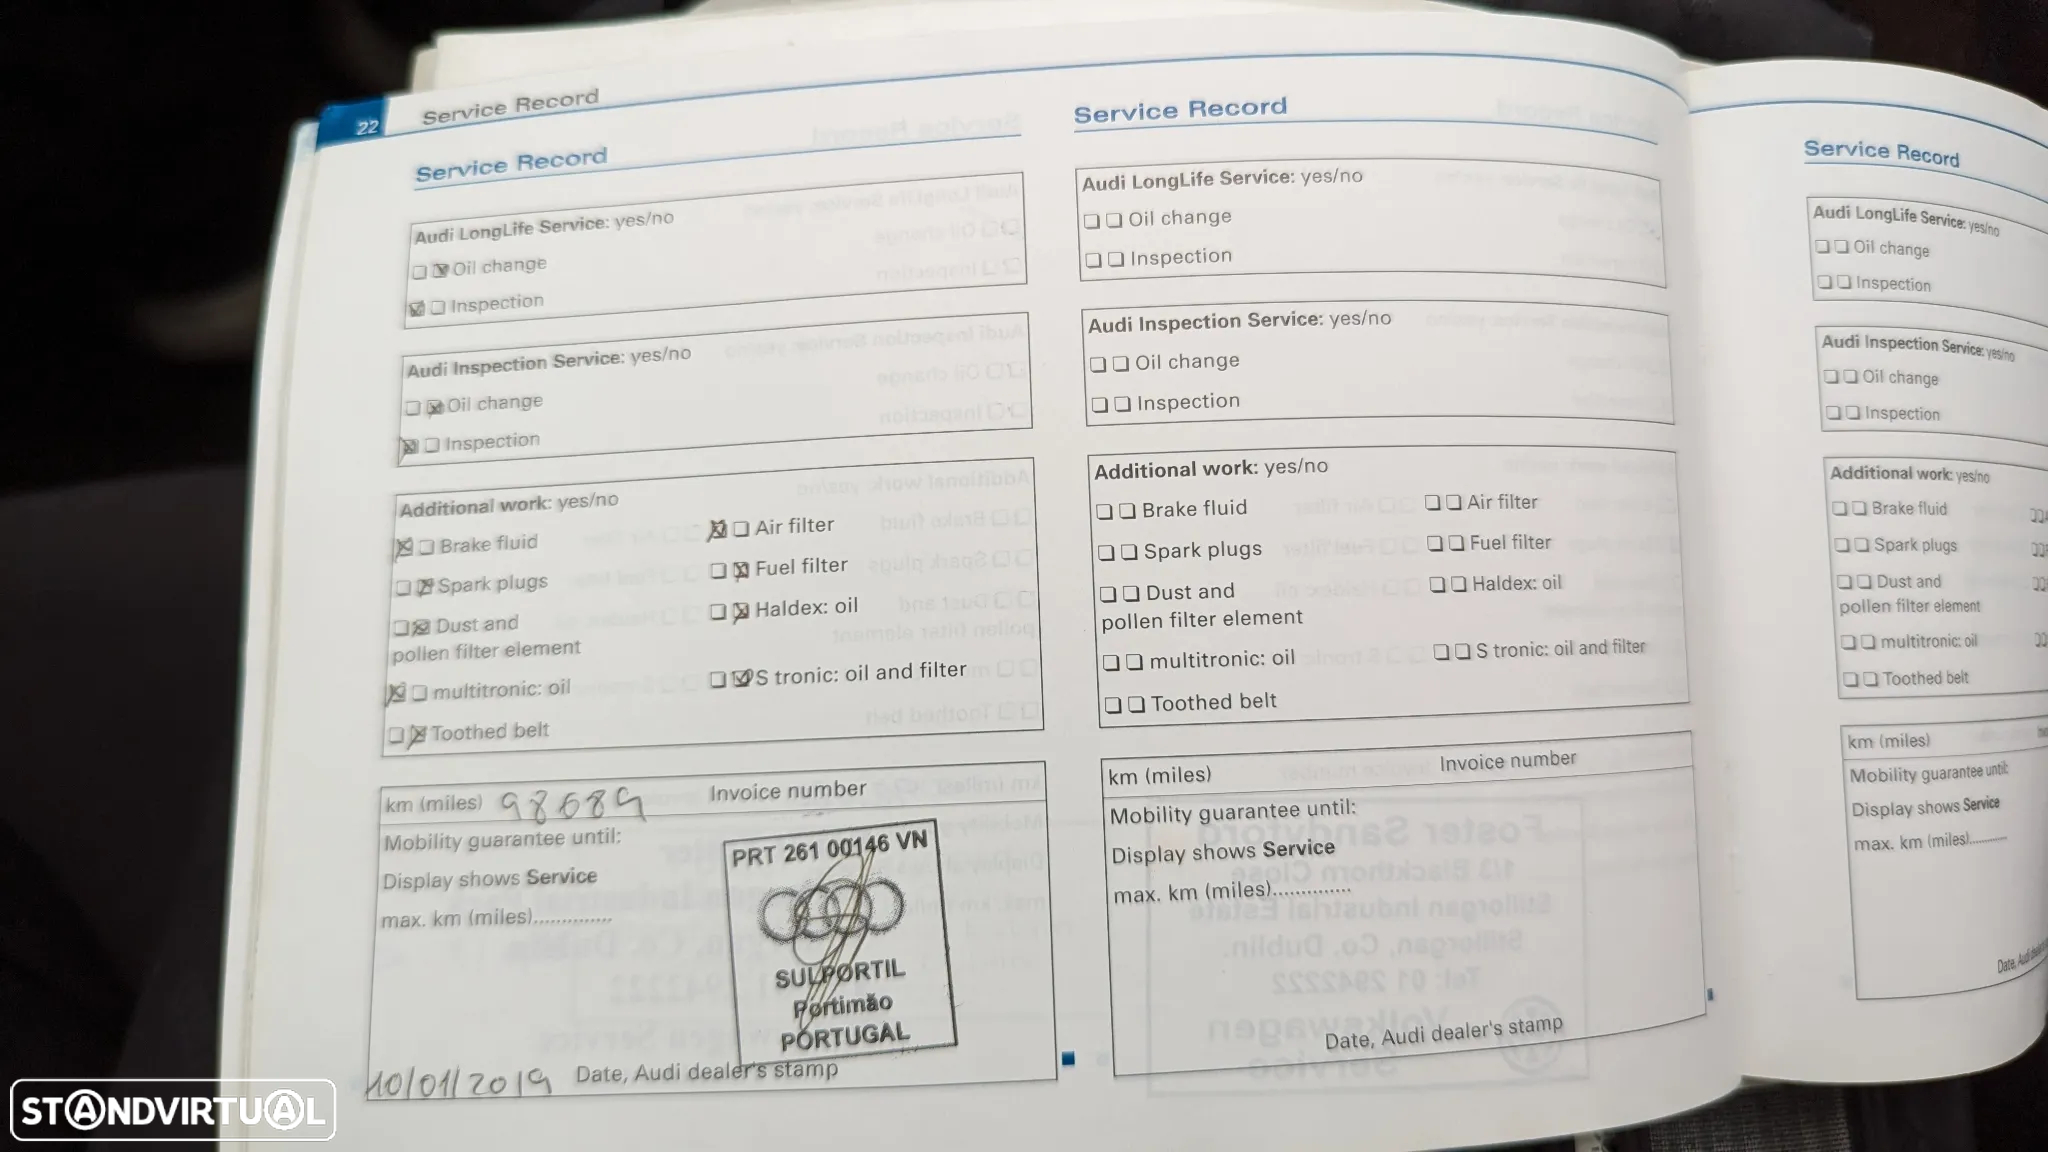 22 Service Record
Service Record
Audi LongLife Service: yes/no
Oil change
Inspection
Audi Inspection Service: yes/no
Oil change
Inspection
Additional work: yes/no
Brake fluid
Air filter
Spark plugs
Fuel filter
Dust and
pollen filter element
Haldex: oil
multitronic: oil
S tronic: oil and filter
Toothed belt
km (miles) 98689 Invoice number
Mobility guarantee until:
Display shows Service
max. km (miles)..............
PRT 261 00146 VN
SULPORTIL
Portimão
PORTUGAL
10/01/2019 Date, Audi dealer's stamp
Service Record
Audi LongLife Service: yes/no
Oil change
Inspection
Audi Inspection Service: yes/no
Oil change
Inspection
Additional work: yes/no
Brake fluid
Air filter
Spark plugs
Fuel filter
Dust and
pollen filter element
Haldex: oil
multitronic: oil
S tronic: oil and filter
Toothed belt
km (miles) Invoice number
Mobility guarantee until:
Display shows Service
max. km (miles)..............
Date, Audi dealer's stamp
Service Record
Audi LongLife Service: yes/no
Oil change
Inspection
Audi Inspection Service: yes/no
Oil change
Inspection
Additional work: yes/no
Brake fluid
Spark plugs
Dust and
pollen filter element
multitronic: oil
Toothed belt
km (miles)
Mobility guarantee until:
Display shows Service
max. km (miles)............
Date, Audi
STANDVIRTUAL